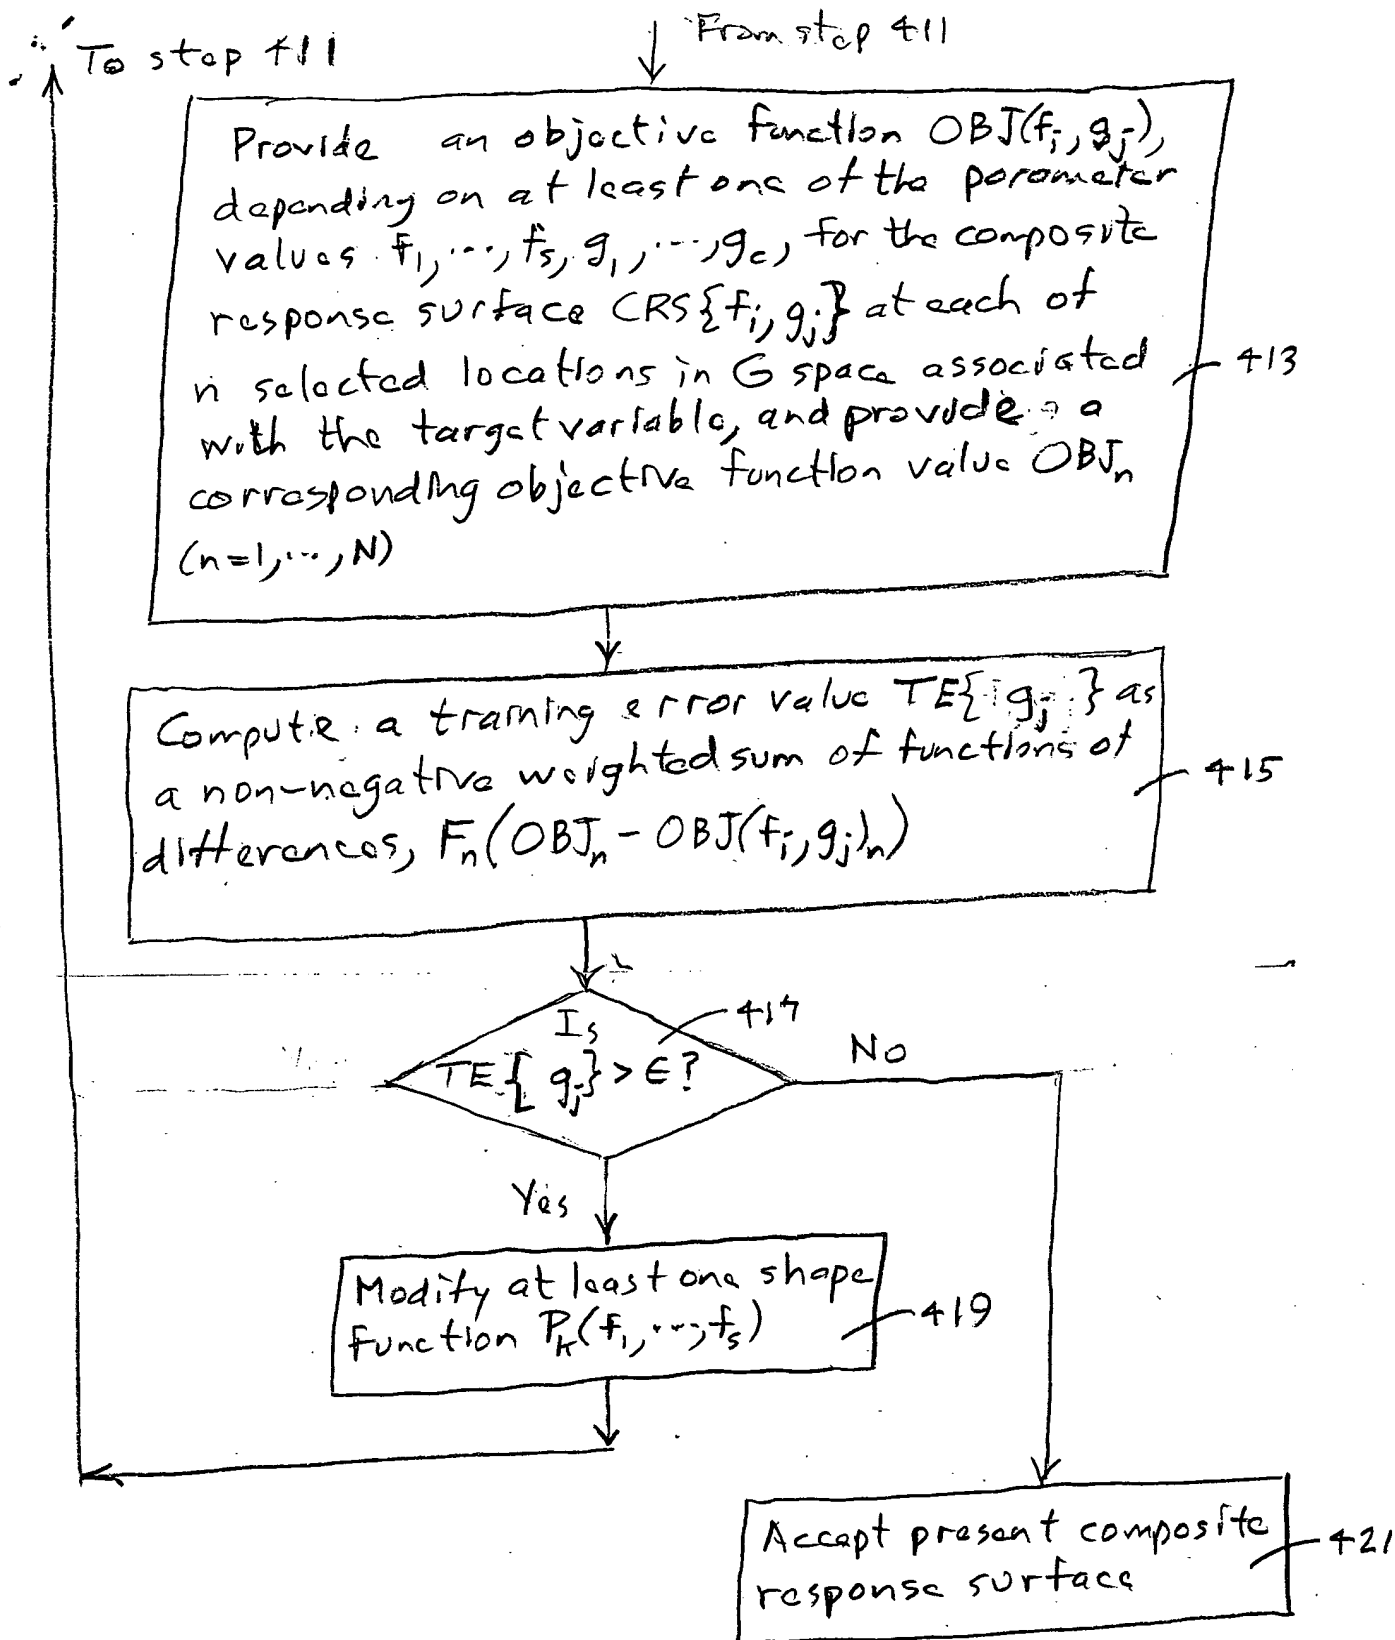 To step 411
From step 411
Provide an objective function OBJ(f_i, g_j),
depending on at least one of the parameter
values f_1, ..., f_s, g_1, ..., g_c, for the composite
response surface CRS{f_i, g_j} at each of
n selected locations in G space associated
with the target variable, and provide a
corresponding objective function value OBJ_n
(n=1, ..., N)
413
Compute a training error value TE{g_j} as
a non-negative weighted sum of functions of
differences, F_n(OBJ_n - OBJ(f_i, g_j)_n)
415
Is
TE{g_j} > ∈?
417
No
Yes
Modify at least one shape
function P_k(f_1, ..., f_s)
419
Accept present composite
response surface
421